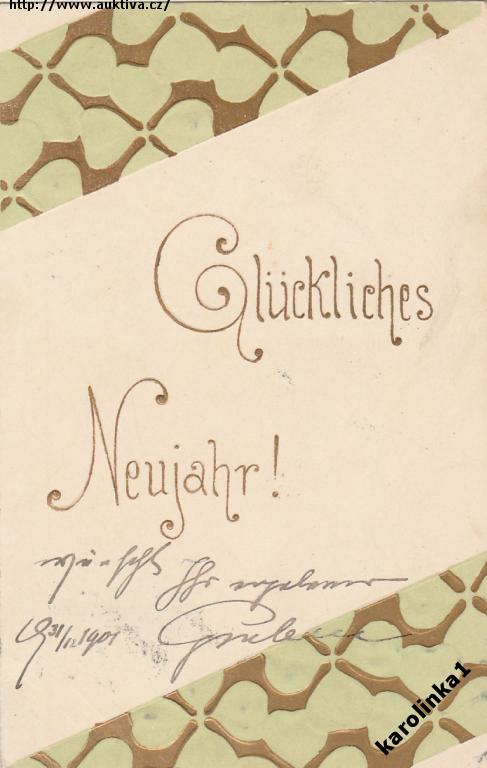 http://www.auktiva.cz/
Glückliches
Neujahr!
wünscht Ihr ergebener
31/12 1901
karolinka1